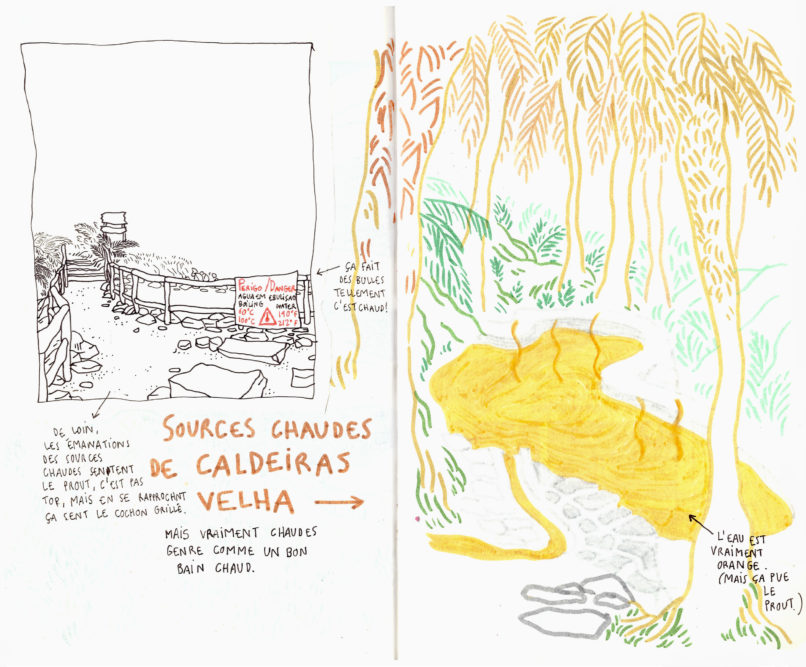 PERIGO / DANGER
AGUA EM EBULIÇAO
BOILING WATER
60°C 140°F
100°C 212°F
ÇA FAIT
DES BULLES
TELLEMENT
C'EST CHAUD!
DE LOIN,
LES ÉMANATIONS
DES SOURCES
CHAUDES SENTENT
LE PROUT, C'EST PAS
TOP, MAIS EN SE RAPPROCHANT
ÇA SENT LE COCHON GRILLÉ.
SOURCES CHAUDES
DE CALDEIRAS
VELHA
MAIS VRAIMENT CHAUDES
GENRE COMME UN BON
BAIN CHAUD.
L'EAU EST
VRAIMENT
ORANGE.
(MAIS ÇA PUE
LE
PROUT.)